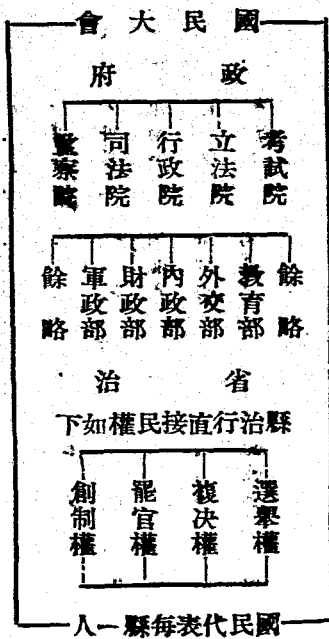 國民大會
政府
考試院
立法院
行政院
司法院
監察院
餘略
教育部
外交部
內政部
財政部
軍政部
餘略
省治
縣治行直接民權如下
選舉權
複決權
罷官權
創制權
國民代表每縣一人